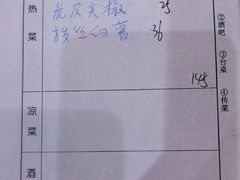 热菜
虎皮尖椒 25
拔丝白薯 36
145
凉菜
酒
②酒吧
③台桌
④传菜